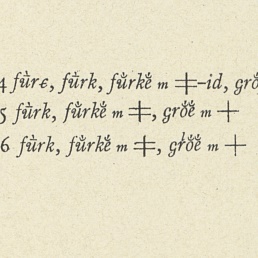 4 fǜrɛ, fǜrk, fǘrkĕ́ m ⋕–id, grŏ
5 fǜrk, fǘrkĕ́ m ⋕, grŏ́ĕ́ m +
6 fǜrk, fǘrkĕ́ m ⋕, grŏ́ĕ́ m +